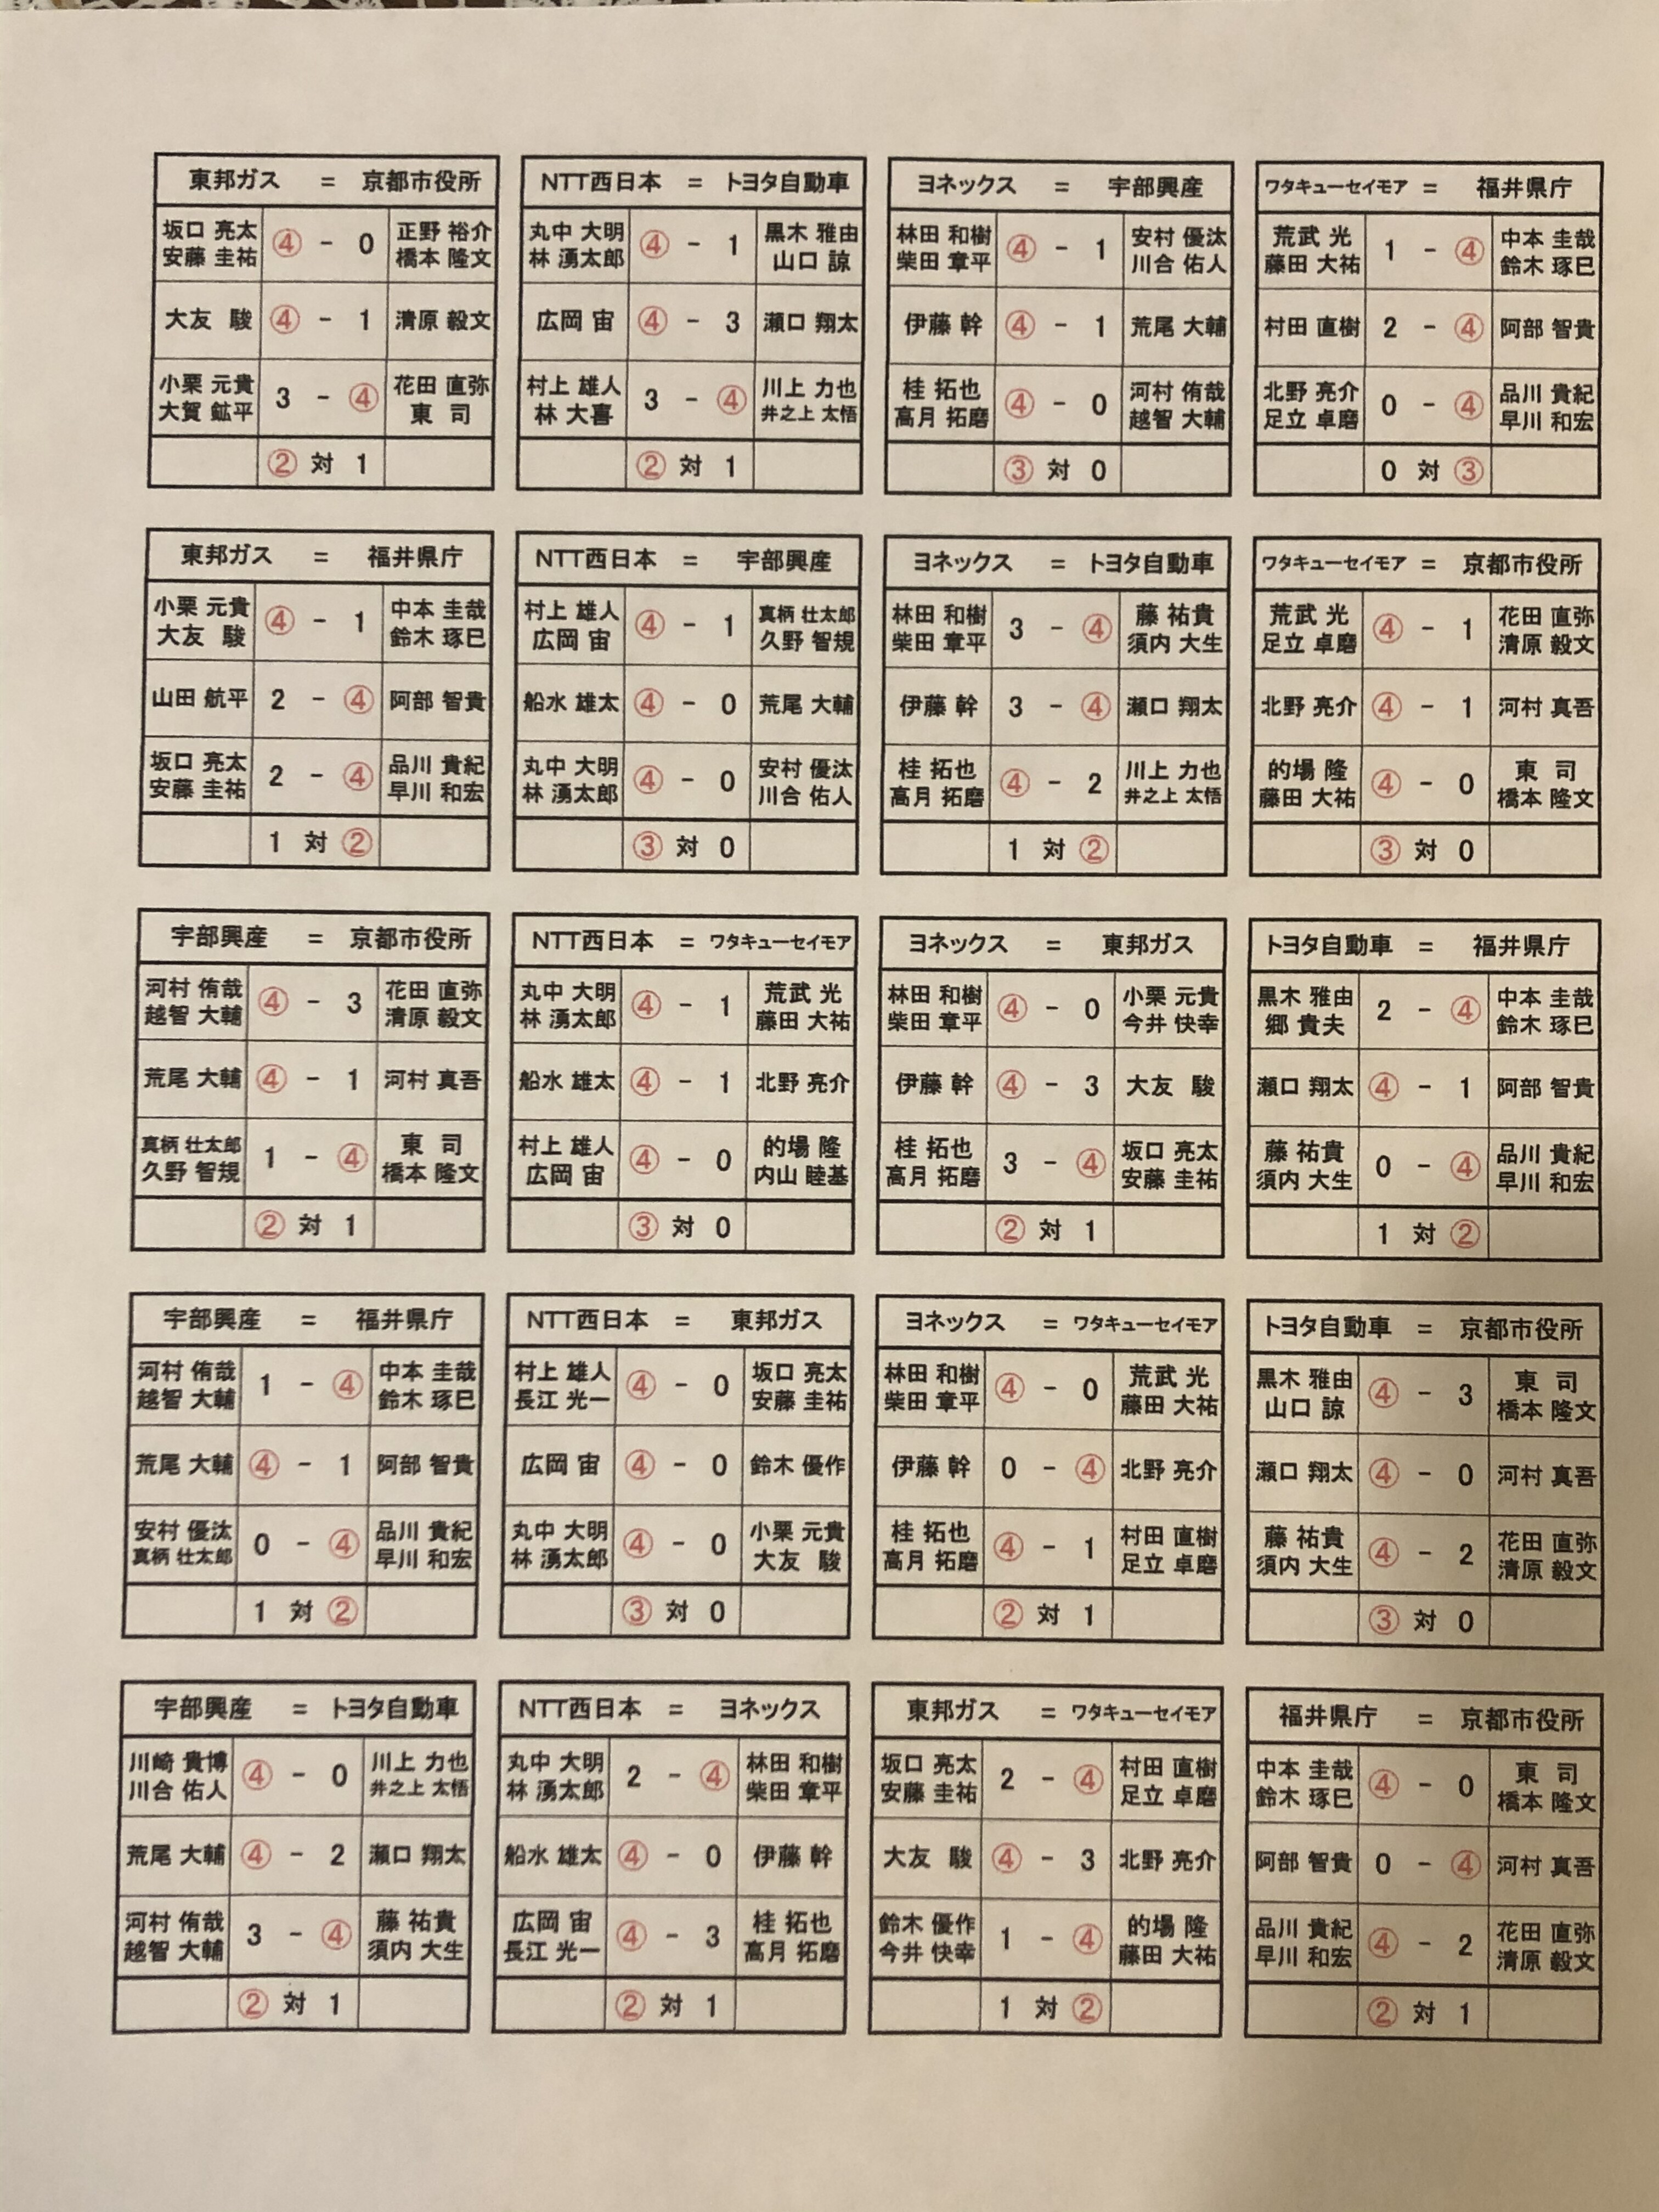 東邦ガス = 京都市役所
坂口 亮太 ④ - 0 正野 裕介
安藤 圭祐 橋本 隆文
大友 駿 ④ - 1 清原 毅文
小栗 元貴 3 - ④ 花田 直弥
大賀 鉱平 東 司
② 対 1
NTT西日本 = トヨタ自動車
丸中 大明 ④ - 1 黒木 雅由
林 湧太郎 山口 諒
広岡 宙 ④ - 3 瀬口 翔太
村上 雄人 3 - ④ 川上 力也
林 大喜 井之上 太悟
② 対 1
ヨネックス = 宇部興産
林田 和樹 ④ - 1 安村 優汰
柴田 章平 川合 佑人
伊藤 幹 ④ - 1 荒尾 大輔
桂 拓也 ④ - 0 河村 侑哉
高月 拓磨 越智 大輔
③ 対 0
ワタキューセイモア = 福井県庁
荒武 光 1 - ④ 中本 圭哉
藤田 大祐 鈴木 琢巳
村田 直樹 2 - ④ 阿部 智貴
北野 亮介 0 - ④ 品川 貴紀
足立 卓磨 早川 和宏
0 対 ③
東邦ガス = 福井県庁
小栗 元貴 ④ - 1 中本 圭哉
大友 駿 鈴木 琢巳
山田 航平 2 - ④ 阿部 智貴
坂口 亮太 2 - ④ 品川 貴紀
安藤 圭祐 早川 和宏
1 対 ②
NTT西日本 = 宇部興産
村上 雄人 ④ - 1 真柄 壮太郎
広岡 宙 久野 智規
船水 雄太 ④ - 0 荒尾 大輔
丸中 大明 ④ - 0 安村 優汰
林 湧太郎 川合 佑人
③ 対 0
ヨネックス = トヨタ自動車
林田 和樹 3 - ④ 藤 祐貴
柴田 章平 須内 大生
伊藤 幹 3 - ④ 瀬口 翔太
桂 拓也 ④ - 2 川上 力也
高月 拓磨 井之上 太悟
1 対 ②
ワタキューセイモア = 京都市役所
荒武 光 ④ - 1 花田 直弥
足立 卓磨 清原 毅文
北野 亮介 ④ - 1 河村 真吾
的場 隆 ④ - 0 東 司
藤田 大祐 橋本 隆文
③ 対 0
宇部興産 = 京都市役所
河村 侑哉 ④ - 3 花田 直弥
越智 大輔 清原 毅文
荒尾 大輔 ④ - 1 河村 真吾
真柄 壮太郎 1 - ④ 東 司
久野 智規 橋本 隆文
② 対 1
NTT西日本 = ワタキューセイモア
丸中 大明 ④ - 1 荒武 光
林 湧太郎 藤田 大祐
船水 雄太 ④ - 1 北野 亮介
村上 雄人 ④ - 0 的場 隆
広岡 宙 内山 睦基
③ 対 0
ヨネックス = 東邦ガス
林田 和樹 ④ - 0 小栗 元貴
柴田 章平 今井 快幸
伊藤 幹 ④ - 3 大友 駿
桂 拓也 3 - ④ 坂口 亮太
高月 拓磨 安藤 圭祐
② 対 1
トヨタ自動車 = 福井県庁
黒木 雅由 2 - ④ 中本 圭哉
郷 貴夫 鈴木 琢巳
瀬口 翔太 ④ - 1 阿部 智貴
藤 祐貴 0 - ④ 品川 貴紀
須内 大生 早川 和宏
1 対 ②
宇部興産 = 福井県庁
河村 侑哉 1 - ④ 中本 圭哉
越智 大輔 鈴木 琢巳
荒尾 大輔 ④ - 1 阿部 智貴
安村 優汰 0 - ④ 品川 貴紀
真柄 壮太郎 早川 和宏
1 対 ②
NTT西日本 = 東邦ガス
村上 雄人 ④ - 0 坂口 亮太
長江 光一 安藤 圭祐
広岡 宙 ④ - 0 鈴木 優作
丸中 大明 ④ - 0 小栗 元貴
林 湧太郎 大友 駿
③ 対 0
ヨネックス = ワタキューセイモア
林田 和樹 ④ - 0 荒武 光
柴田 章平 藤田 大祐
伊藤 幹 0 - ④ 北野 亮介
桂 拓也 ④ - 1 村田 直樹
高月 拓磨 足立 卓磨
② 対 1
トヨタ自動車 = 京都市役所
黒木 雅由 ④ - 3 東 司
山口 諒 橋本 隆文
瀬口 翔太 ④ - 0 河村 真吾
藤 祐貴 ④ - 2 花田 直弥
須内 大生 清原 毅文
③ 対 0
宇部興産 = トヨタ自動車
川崎 貴博 ④ - 0 川上 力也
川合 佑人 井之上 太悟
荒尾 大輔 ④ - 2 瀬口 翔太
河村 侑哉 3 - ④ 藤 祐貴
越智 大輔 須内 大生
② 対 1
NTT西日本 = ヨネックス
丸中 大明 2 - ④ 林田 和樹
林 湧太郎 柴田 章平
船水 雄太 ④ - 0 伊藤 幹
広岡 宙 ④ - 3 桂 拓也
長江 光一 高月 拓磨
② 対 1
東邦ガス = ワタキューセイモア
坂口 亮太 2 - ④ 村田 直樹
安藤 圭祐 足立 卓磨
大友 駿 ④ - 3 北野 亮介
鈴木 優作 1 - ④ 的場 隆
今井 快幸 藤田 大祐
1 対 ②
福井県庁 = 京都市役所
中本 圭哉 ④ - 0 東 司
鈴木 琢巳 橋本 隆文
阿部 智貴 0 - ④ 河村 真吾
品川 貴紀 ④ - 2 花田 直弥
早川 和宏 清原 毅文
② 対 1